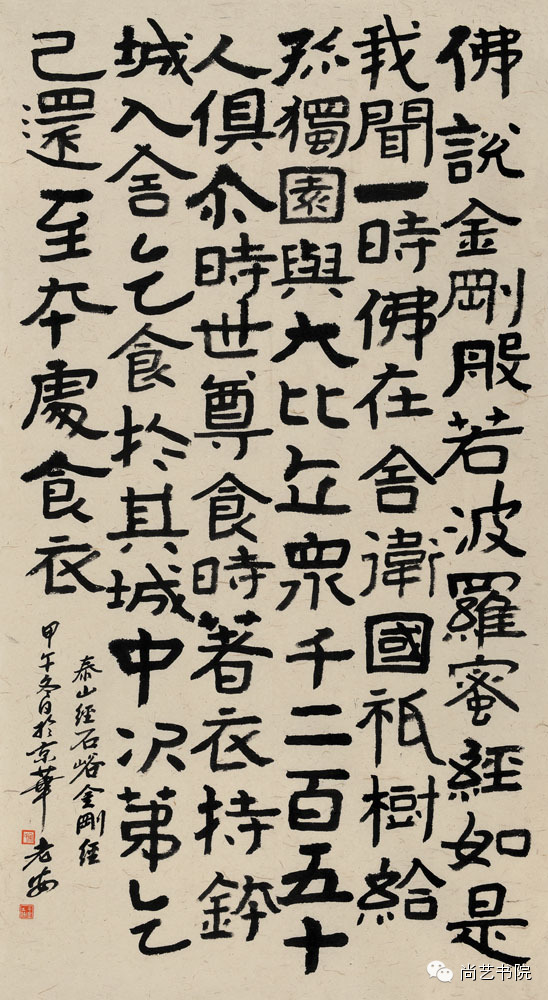 佛說金剛般若波羅蜜經如是
我聞一時佛在舍衛國祇樹給
孤獨園與大比丘眾千二百五十
人俱尒時世尊食時著衣持鉢
城入舍乞食於其城中次第乞
已還至本處食衣
泰山經石峪金剛經
甲午冬日於京華 老安
尚艺书院